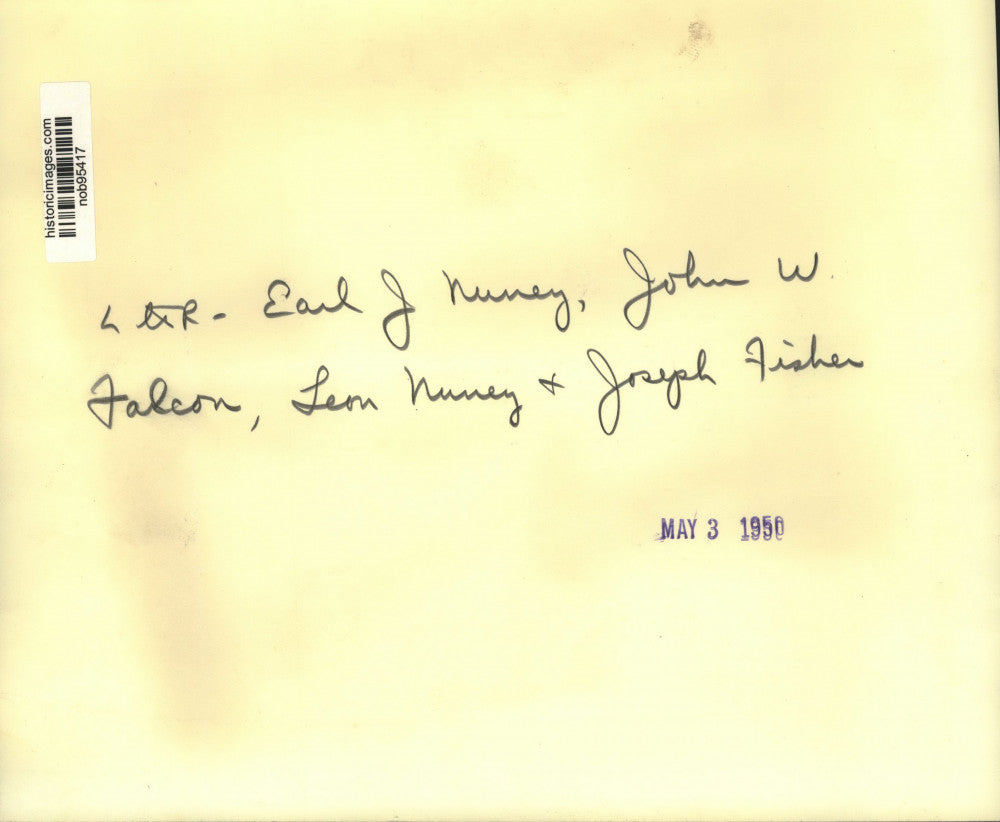 historicimages.com
nob95417
L to R - Earl J Nuney, John W.
Falcon, Leon Nuney + Joseph Fisher
MAY 3 1950